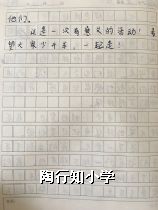 他们。
这是一次有意义的活动！希
望大家少开车，一起走！
陶行知小学